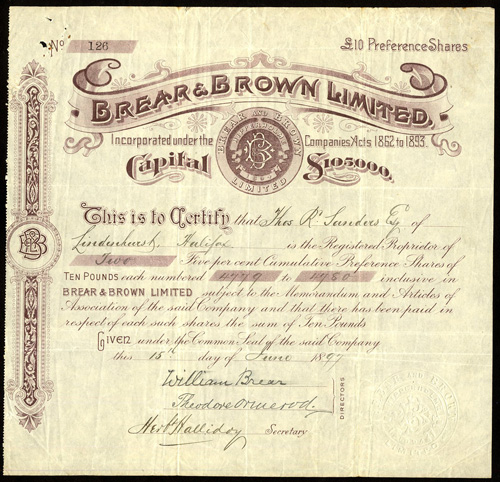 No 126
£10 Preference Shares
BREAR & BROWN LIMITED.
Incorporated under the Companies Acts 1862 to 1893.
BREAR AND BROWN LIMITED
Capital £105000.
This is to Certify that Thos Rd Sunders Esq of
Lindenhurst, Halifax is the Registered Proprietor of
Two Five per cent Cumulative Preference Shares of
TEN POUNDS each numbered 4779 to 4780 inclusive in
BREAR & BROWN LIMITED subject to the Memorandum and Articles of
Association of the said Company and that there has been paid in
respect of each such shares the sum of Ten Pounds
GIVEN under the Common Seal of the said Company
this 15th day of June 1897
William Brear
Theodore Ormerod.
DIRECTORS
Herbt Halliday Secretary